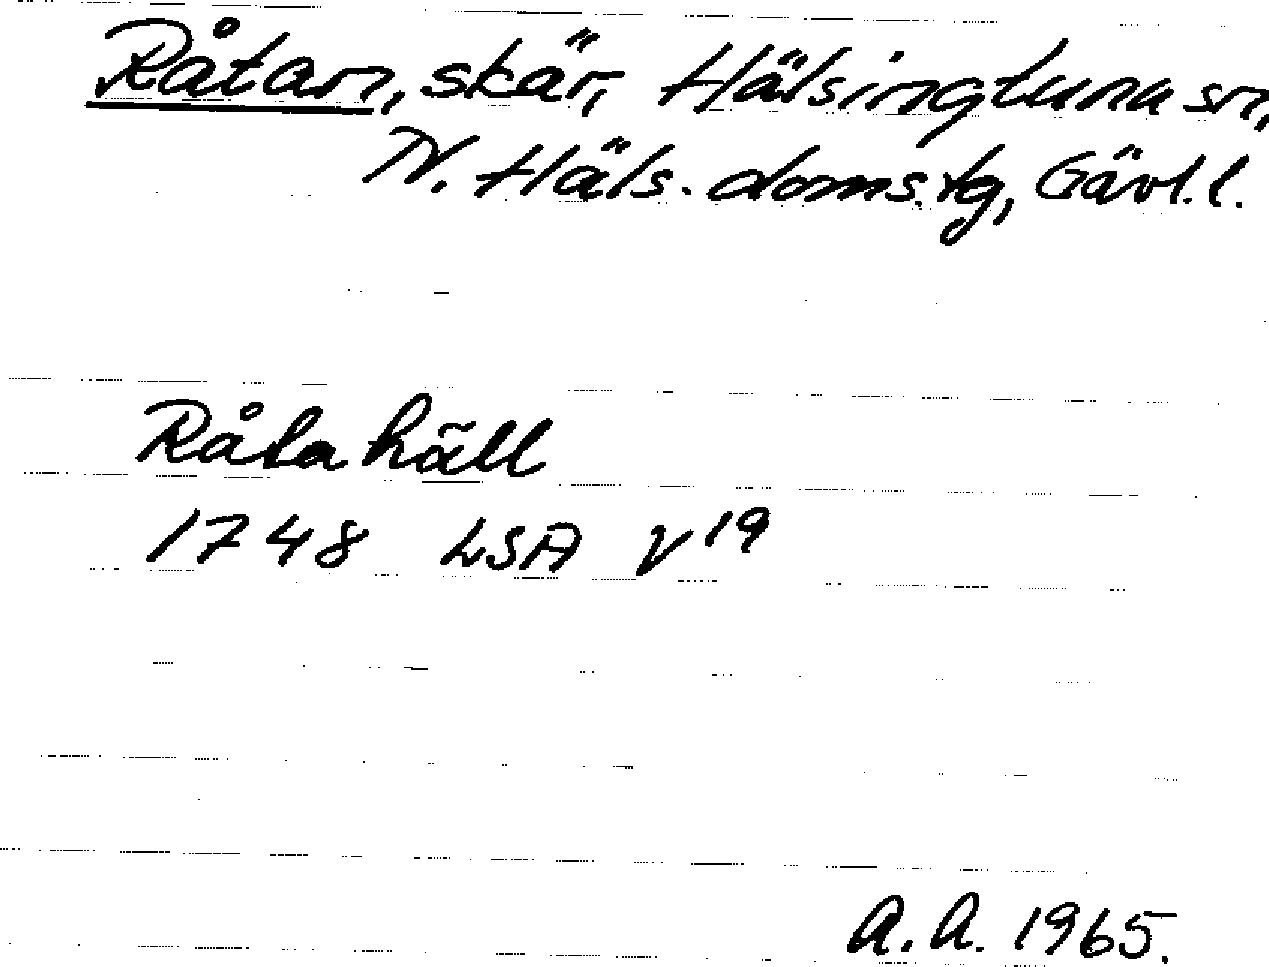 Råtan, skär, Hälsingtuna sn,
N. Häls. doms.tg, Gävl.l.
Råtahäll
1748 LSA V19
A.A. 1965.